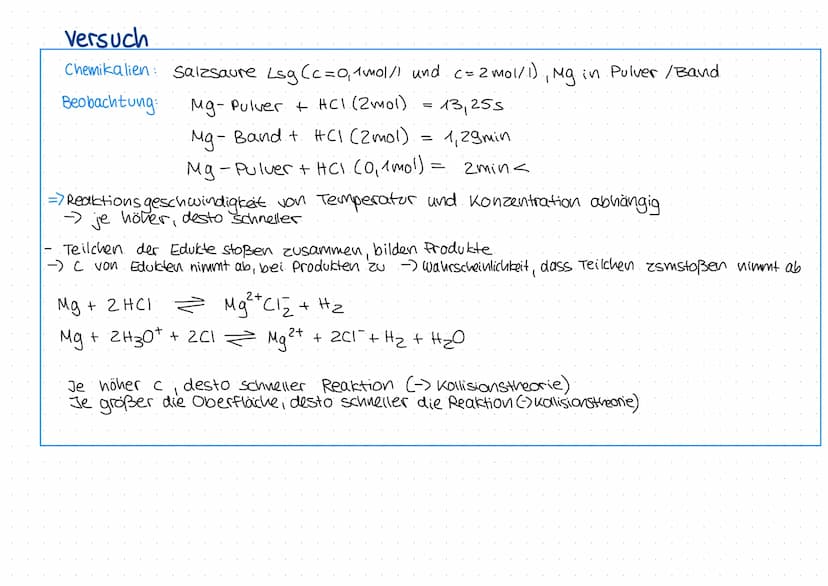 Versuch
Chemikalien: Salzsaure Lsg (c=0,1mol/l und c=2mol/l), Mg in Pulver/Band
Beobachtung: Mg-Pulver + HCl (2mol) = 13,25s
Mg-Band + HCl (2mol) = 1,29min
Mg-Pulver + HCl (0,1mol) = 2min<
=> Reaktionsgeschwindigkeit von Temperatur und Konzentration abhängig
-> je höher, desto schneller
- Teilchen der Edukte stoßen zusammen, bilden Produkte
-> C von Edukten nimmt ab, bei Produkten zu -> Wahrscheinlichkeit, dass Teilchen zsmstoßen nimmt ab
Mg + 2HCl ⇌ Mg²⁺Cl₂⁻ + H₂
Mg + 2H₃O⁺ + 2Cl ⇌ Mg²⁺ + 2Cl⁻ + H₂ + H₂O
Je höher c, desto schneller Reaktion (-> Kollisionstheorie)
Je größer die Oberfläche, desto schneller die Reaktion (-> Kollisionstheorie)